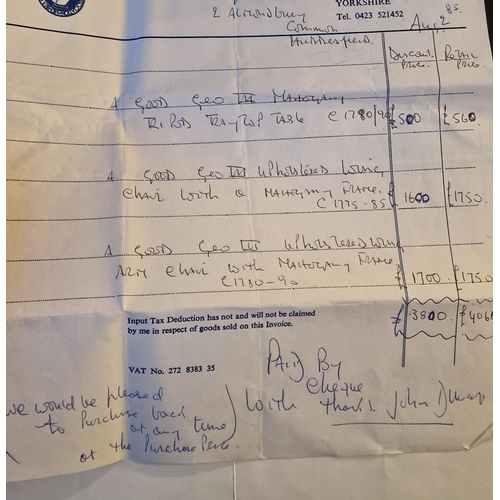 YORKSHIRE
2 Almondbury
Tel. 0423 521452
Common
Huddersfield.
Aug 2 85.
Discount Price.
Retail Price.
A GOOD GEO III MAHOGANY
TRIPOD TRAY TOP TABLE C 1780/90 £500 £560
A GOOD GEO III UPHOLSTERED WING
CHAIR WITH A MAHOGANY FRAME.
C 1775-85 £ 1600 £1750.
A GOOD GEO III UPHOLSTERED WING
ARM CHAIR WITH MAHOGANY FRAME.
C 1780-90 £ 1700 £1750
Input Tax Deduction has not and will not be claimed
by me in respect of goods sold on this Invoice.
£ 3800. £4060
VAT No. 272 8383 35
PAID BY
cheque
with thanks. John
we would be pleased
to purchase back
at any time
at the Purchase Price.